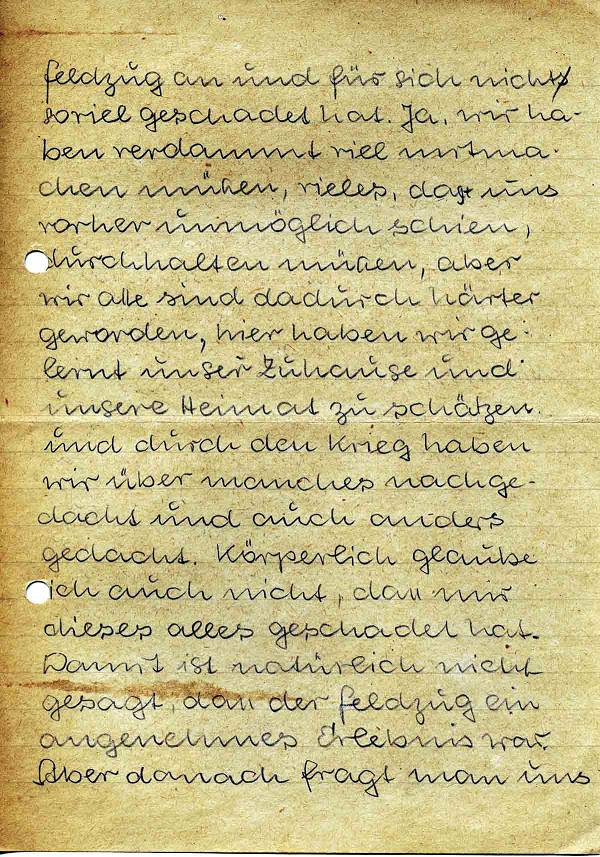 feldzug an und für sich nicht
soviel geschadet hat. Ja, wir ha-
ben verdammt viel mitma-
chen müßen, vieles, daß uns
vorher unmöglich schien,
durchhalten müßen, aber
wir alle sind dadurch härter
geworden, hier haben wir ge-
lernt unser Zuhause und
unsere Heimat zu schätzen.
und durch den Krieg haben
wir über manches nachge-
dacht und auch anders
gedacht. Körperlich glaube
ich auch nicht, daß mir
dieses alles geschadet hat.
Damit ist natürlich nicht
gesagt, daß der feldzug ein
angenehmes Erlebnis war.
Aber danach fragt man uns